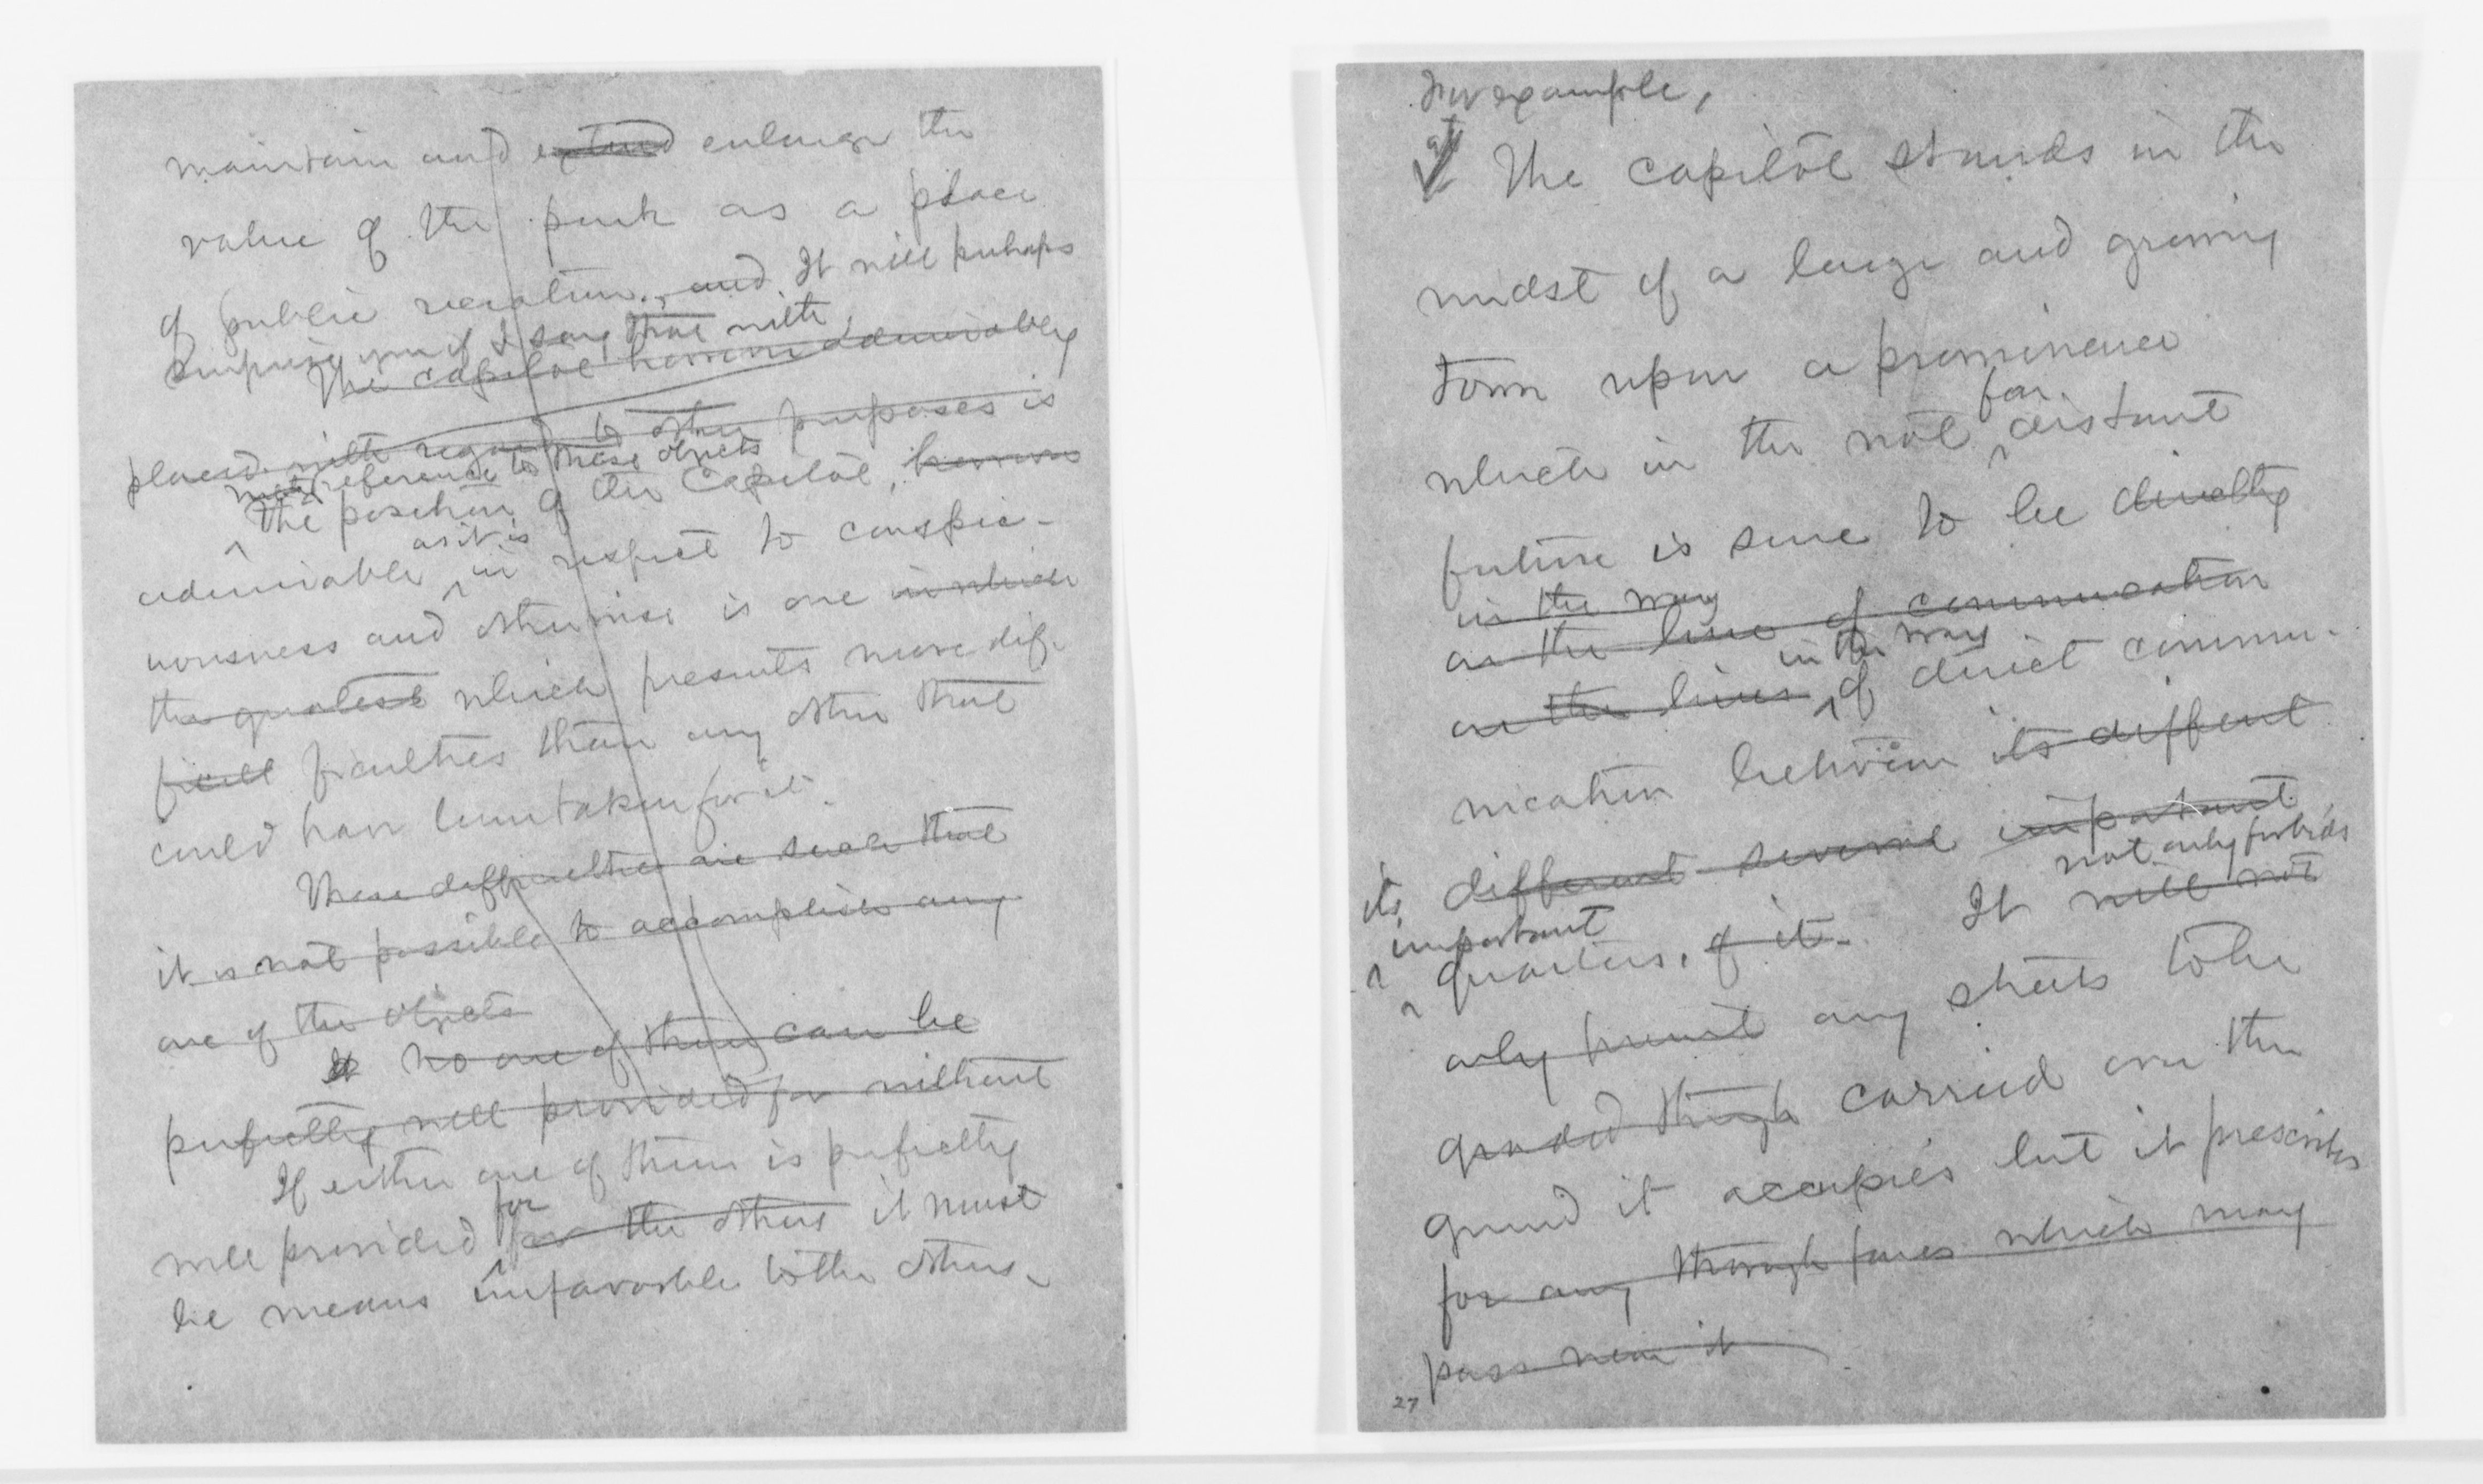 maintain and extend enlarge the
value of the park as a place
of public recreation., and It will perhaps
surprise you if I say that with
The capitol however admirably
placed with regard to other purposes is
with reference to these objects
The position of the Capitol, however
as it is
admirable in respect to conspic-
uousness and otherwise is one in which
the greatest which presents more dif-
ficulties than any other that
could have been taken for it.
These difficulties are such that
it is not possible to accomplish any
one of the objects
no one of them can be
perfectly well provided for without
If either one of them is perfectly
for
well provided for the others it must
be means unfavorable to the others.
For example,
The capitol stands in the
midst of a large and growing
town upon a prominence
far
which in the not distant
future is sure to be directly
in the way
on the line of communication
in the way
on the lines of direct commu-
nication between its different
important
its different several
not only forbids
important It will not
quarters. of it.
only permit any streets to be
graded through carried over the
ground it occupies but it prescribes
for any thorough fares which may
pass near it
27